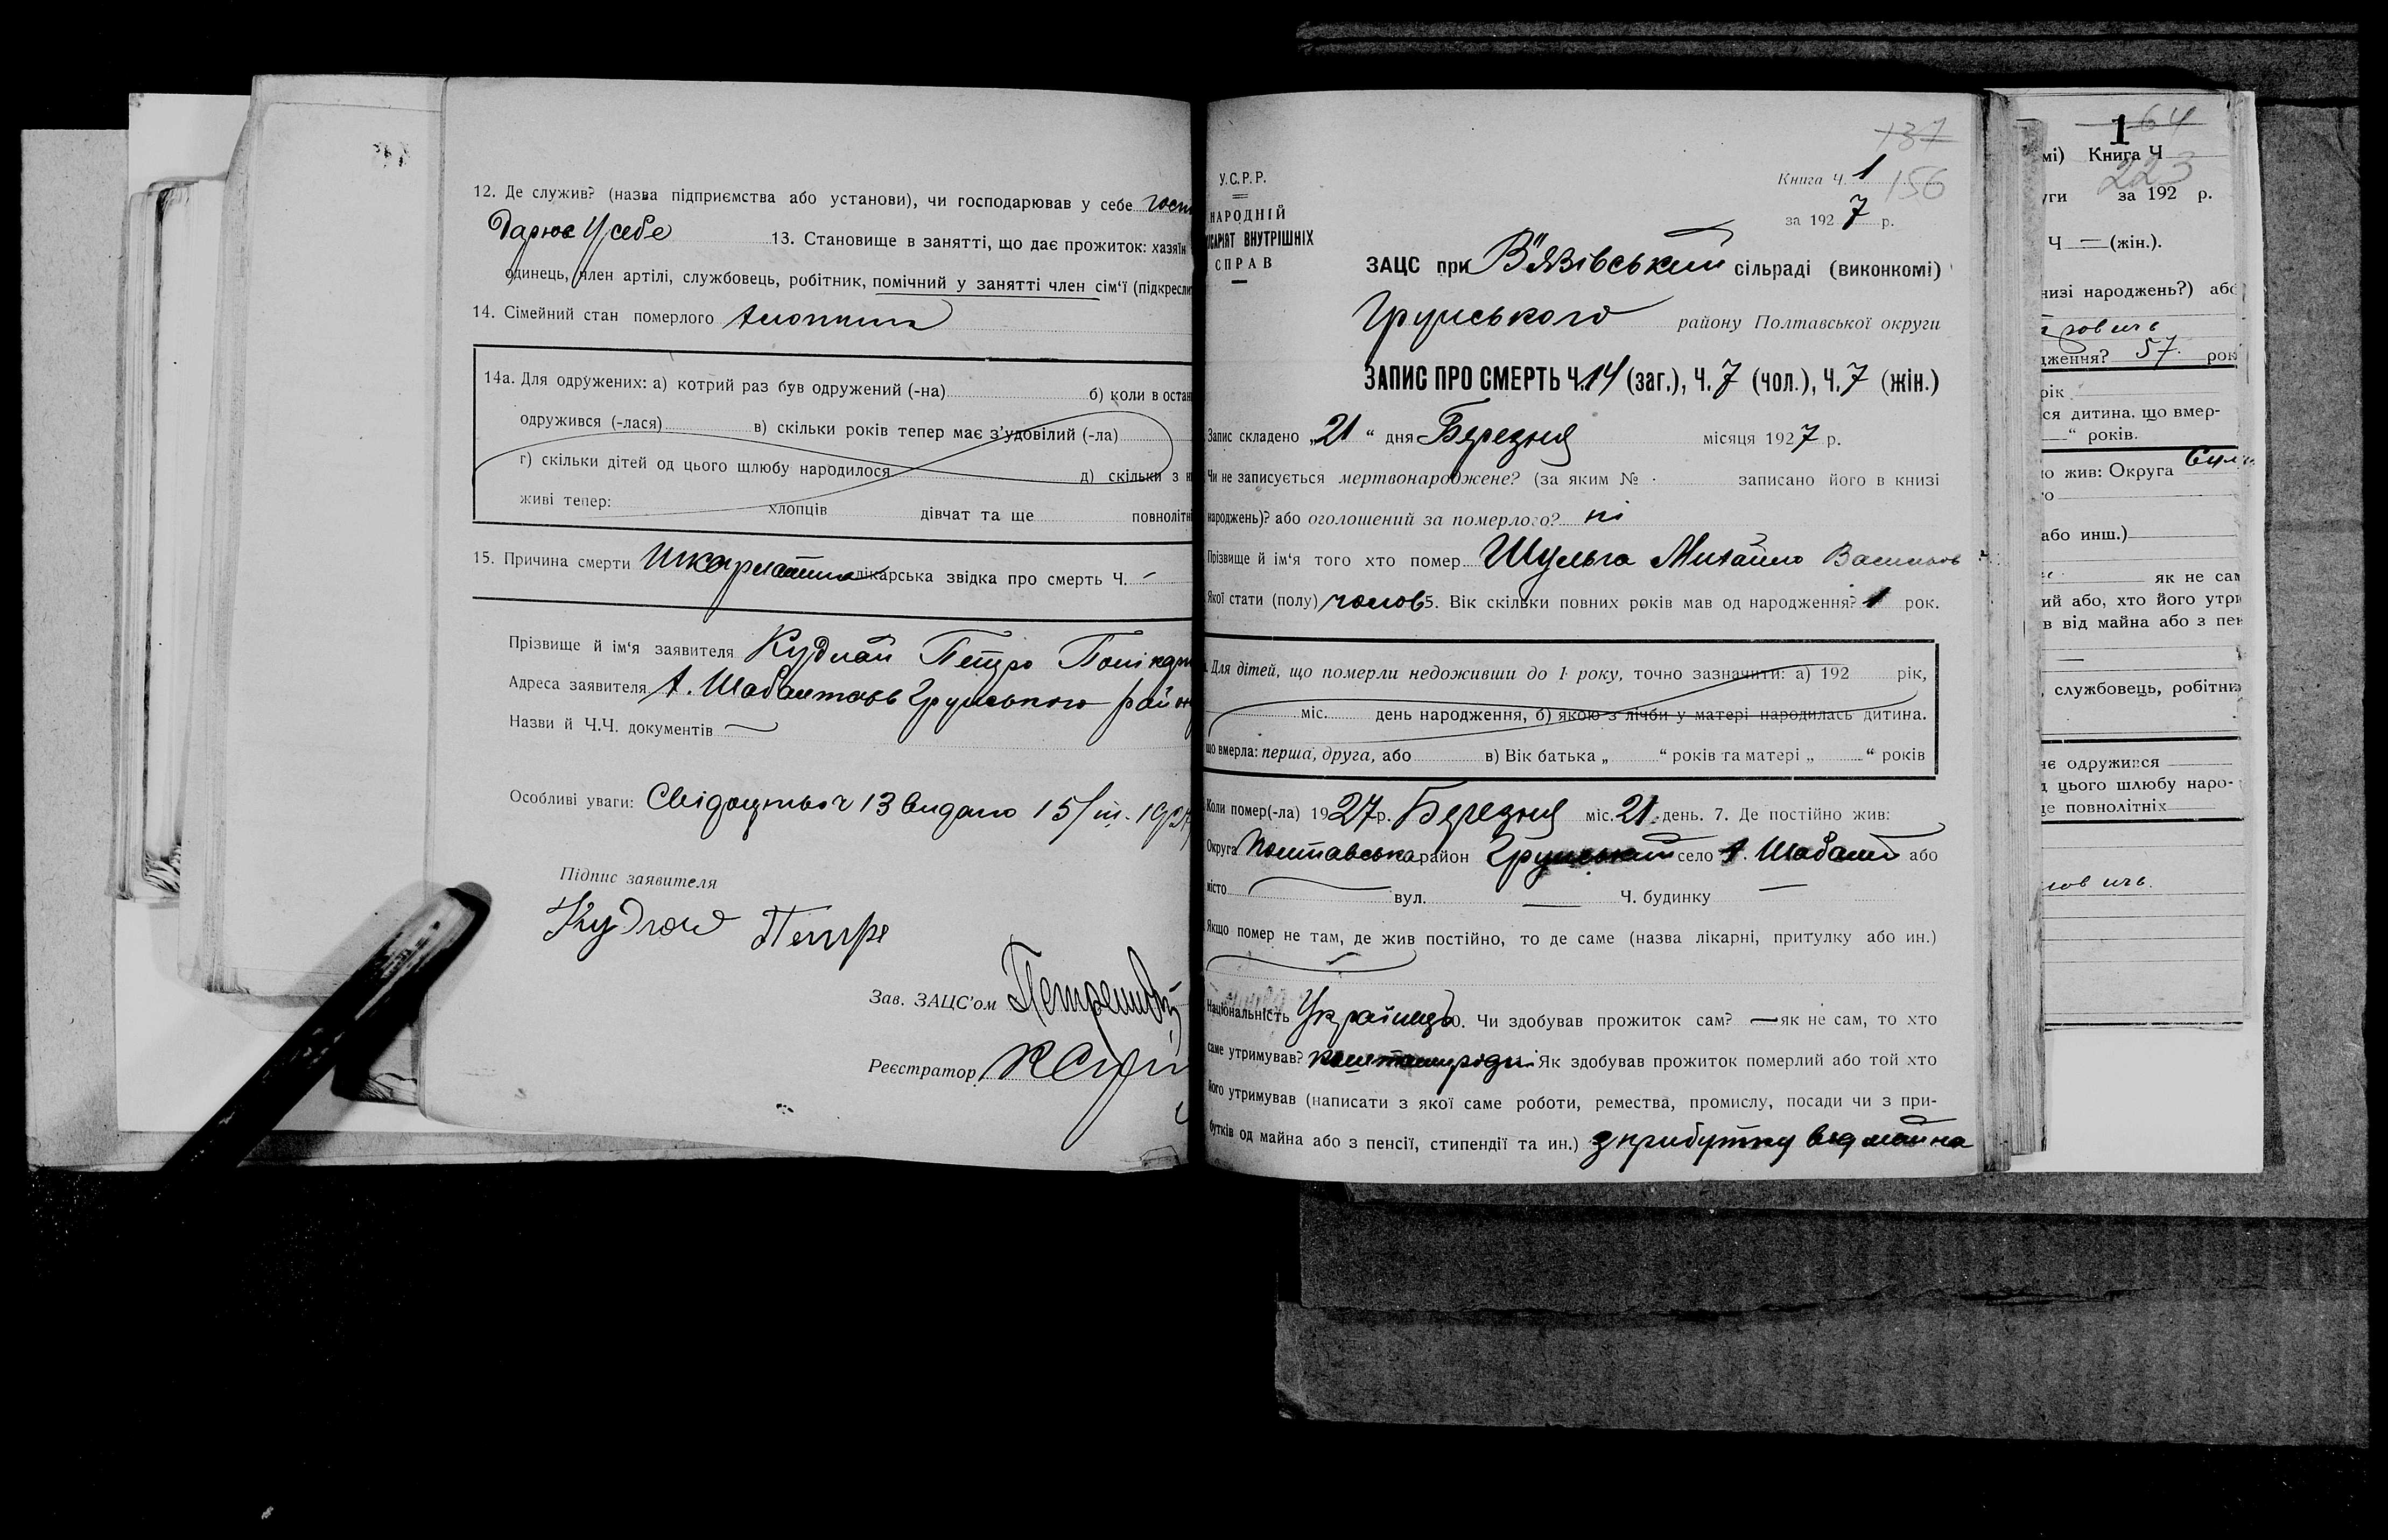 12. Де служив? (назва підприємства або установи), чи господарював у себе госп
дарює У себе 13. Становище в занятті, що дає прожиток: хазяїн
одинець, член артілі, службовець, робітник, помічний у занятті член сім'ї (підкресли
14. Сімейний стан померлого
14а. Для одружених: а) котрий раз був одружений (-на) б) коли в остан
одружився (-лася) в) скільки років тепер має з'удовілий (-ла)
г) скільки дітей од цього щлюбу народилося д) скільки з н
живі тепер: хлопців дівчат та ще повнолітні
15. Причина смерти Шкарлатина лікарська звідка про смерть Ч. –
Прізвище й ім'я заявителя Кудлай Петро Полікар
Адреса заявителя х. Шабалтаєв Грунського райо
Назви й Ч.Ч. документів
Особливі уваги: Свідоцтво ч 13 видано 15/ІІІ. 1927
Підпис заявителя
Кудлай Петро
Зав. ЗАЦС'ом
Реєстратор
137
Книга Ч. 1 156
за 1927 р.
У.С.Р.Р.
НАРОДНІЙ
ОСАРІЯТ ВНУТРІШНІХ
СПРАВ
ЗАЦС при В'язівський сільраді (виконкомі)
Грунського району Полтавської округи
ЗАПИС ПРО СМЕРТЬ Ч. 14 (заг.), Ч. 7 (чол.), Ч. 7 (жін.)
Запис складено „21“ дня Березня місяця 1927 р.
Чи не записується мертвонароджене? (за яким № записано його в книзі
народжень)? або оголошений за померлого? ні
Прізвище й ім'я того хто помер Шульга Михайло Васильов
Якої стати (полу) чолов 5. Вік скільки повних років мав од народження? 1 рок.
Для дітей, що померли недоживши до 1 року, точно зазначити: а) 192 рік,
міс. день народження, б) якою з лічби у матері народилась дитина.
що вмерла: перша, друга, або в) Вік батька „ “ років та матері „ “ років
Коли помер(-ла) 1927 р. Березня міс. 21 день. 7. Де постійно жив:
Округа Полтавська район Грунський село х. або
місто вул. — Ч. будинку —
Якщо помер не там, де жив постійно, то де саме (назва лікарні, притулку або ин.)
Національність Українець 10. Чи здобував прожиток сам? — як не сам, то хто
саме утримував? Як здобував прожиток померлий або той хто
його утримував (написати з якої саме роботи, ремества, промислу, посади чи з при-
бутків од майна або з пенсії, стипендії та ин.) з прибутку від майна
1 64
мі) Книга Ч
223
уги за 192 р.
Ч — (жін.).
низі народжень?) або
ович
дження? 57 рок
рік
ся дитина, що вмер-
“ років.
о жив: Округа
або инш.)
як не сам
ий або, хто його утри
в від майна або з пен
—
, службовець, робітни
не одружився
д цього шлюбу наро-
це повнолітніх